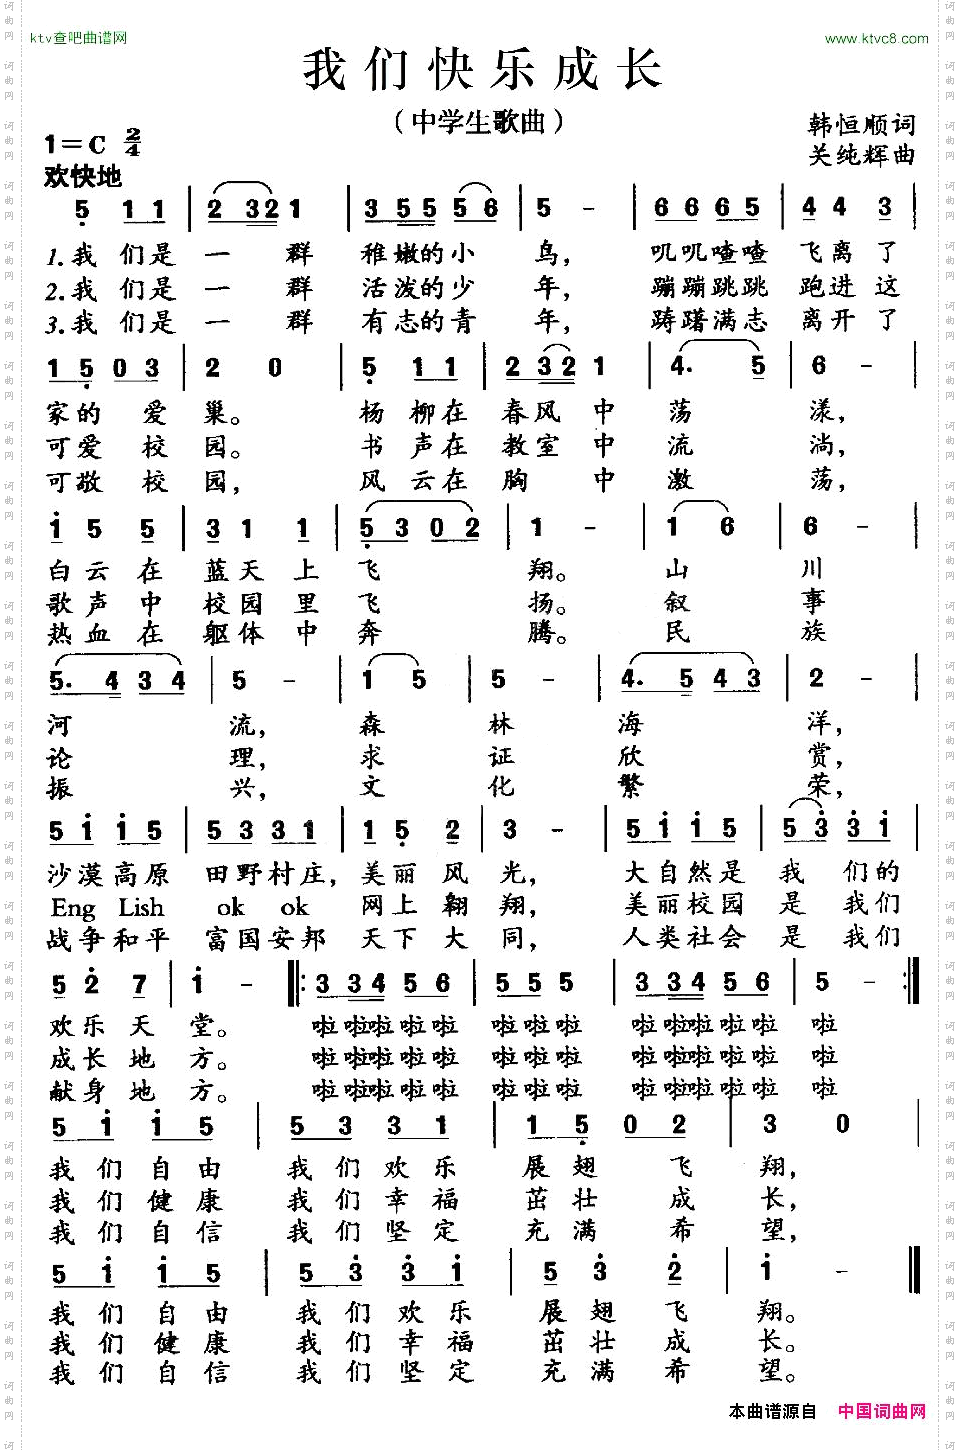 ktv查吧曲谱网
www.ktvc8.com
我们快乐成长
（中学生歌曲）
1=C 2/4
韩恒顺词
关纯辉曲
欢快地
5 1 1 | 2 3 2 1 | 3 5 5 5 6 | 5 - | 6 6 6 5 | 4 4 3 |
1.我 们是 一 群 稚嫩的小 鸟， 叽叽喳喳 飞离了
2.我 们是 一 群 活泼的少 年， 蹦蹦跳跳 跑进这
3.我 们是 一 群 有志的青 年， 踌躇满志 离开了
1 5 0 3 | 2 0 | 5 1 1 | 2 3 2 1 | 4. 5 | 6 - |
家的 爱 巢。 杨 柳在 春风 中 荡 漾，
可爱 校 园。 书 声在 教室 中 流 淌，
可敬 校 园， 风 云在 胸 中 激 荡，
1 5 5 | 3 1 1 | 5 3 0 2 | 1 - | 1 6 | 6 - |
白云 在 蓝天 上 飞 翔。 山 川
歌声 中 校园 里 飞 扬。 叙 事
热血 在 躯体 中 奔 腾。 民 族
5. 4 3 4 | 5 - | 1 5 | 5 - | 4. 5 4 3 | 2 - |
河 流， 森 林 海 洋，
论 理， 求 证 欣 赏，
振 兴， 文 化 繁 荣，
5 1 1 5 | 5 3 3 1 | 1 5 2 | 3 - | 5 1 1 5 | 5 3 3 1 |
沙漠高原 田野村庄， 美丽 风 光， 大自然是 我 们的
Eng Lish ok ok 网上 翱 翔， 美丽校园 是 我们
战争和平 富国安邦 天下 大 同， 人类社会 是 我们
5 2 7 | 1 - ‖: 3 3 4 5 6 | 5 5 5 | 3 3 4 5 6 | 5 - :‖
欢乐 天 堂。 啦 啦啦 啦 啦 啦啦啦 啦 啦啦 啦 啦 啦
成长 地 方。 啦 啦啦 啦 啦 啦啦啦 啦 啦啦 啦 啦 啦
献身 地 方。 啦 啦啦 啦 啦 啦啦啦 啦 啦啦 啦 啦 啦
5 1 1 5 | 5 3 3 1 | 1 5 0 2 | 3 0 |
我 们 自 由 我 们 欢 乐 展 翅 飞 翔，
我 们 健 康 我 们 幸 福 茁 壮 成 长，
我 们 自 信 我 们 坚 定 充 满 希 望，
5 1 1 5 | 5 3 3 1 | 5 3 2 | 1 - ‖
我 们 自 由 我 们 欢 乐 展 翅 飞 翔。
我 们 健 康 我 们 幸 福 茁 壮 成 长。
我 们 自 信 我 们 坚 定 充 满 希 望。
本曲谱源自 中国词曲网